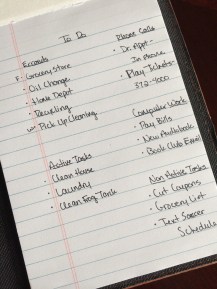 To Do
Errands
• Grocery Store
• Oil Change
• Home Depot
• Recycling
• Pick Up Cleaning
Phone Calls
• Dr. Appt -
In Phone
• Play Tickets -
372-4000
Computer Work
• Pay Bills
• New Audiobook
• Book Club Email
Active Tasks
• Clean House
• Laundry
• Clean Frog Tank
Non Active Tasks
• Cut Coupons
• Grocery List
• Text Soccer
Schedule